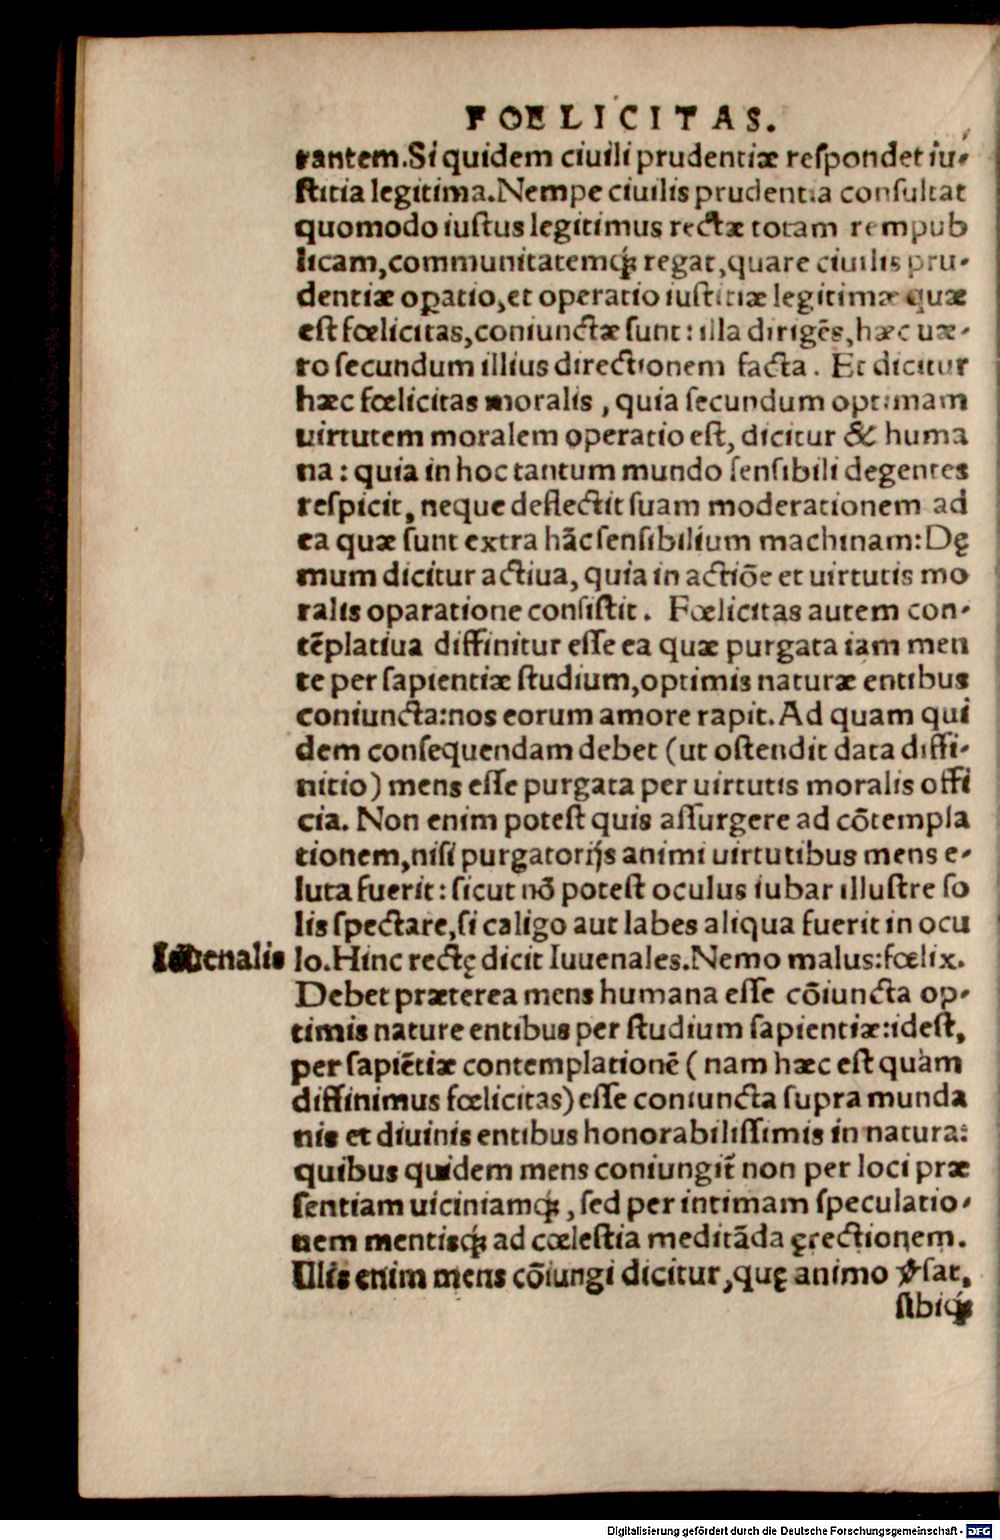 FOELICITAS.
rantem. Si quidem ciuili prudentiæ reſpondet iu-
ſtitia legitima. Nempe ciuilis prudentia conſultat
quomodo iuſtus legitimus rectæ totam rempub
licam, communitatemq́; regat, quare ciuilis pru-
dentiæ oꝑatio, et operatio iuſtitiæ legitimæ quæ
eſt fœlicitas, coniunctæ ſunt: illa dirigẽs, hæc uæ-
ro ſecundum illius directionem facta. Et dicitur
hæc fœlicitas moralis, quia ſecundum optimam
uirtutem moralem operatio eſt, dicitur & huma
na: quia in hoc tantum mundo ſenſibili degentes
reſpicit, neque deflectit ſuam moderationem ad
ea quæ ſunt extra hãc ſenſibilium machinam: Dę
mum dicitur actiua, quia in actiõe et uirtutis mo
ralis oparatione conſiſtit. Fœlicitas autem con-
tẽplatiua diffinitur eſſe ea quæ purgata iam men
te per ſapientiæ ſtudium, optimis naturæ entibus
coniuncta: nos eorum amore rapit. Ad quam qui
dem conſequendam debet (ut oſtendit data diffi-
nitio) mens eſſe purgata per uirtutis moralis offi
cia. Non enim poteſt quis aſſurgere ad cõtempla
tionem, niſi purgatorijs animi uirtutibus mens e-
luta fuerit: ſicut nõ poteſt oculus iubar illuſtre ſo
lis ſpectare, ſi caligo aut labes aliqua fuerit in ocu
Iuuenalis lo. Hinc rectę dicit Iuuenales. Nemo malus: fœlix.
Debet præterea mens humana eſſe cõiuncta op-
timis nature entibus per ſtudium ſapientiæ: ideſt,
per ſapiẽtiæ contemplationẽ (nam hæc eſt quàm
diffinimus fœlicitas) eſſe coniuncta ſupra munda
nis et diuinis entibus honorabiliſſimis in natura:
quibus quidem mens coniungit̃ non per loci præ
ſentiam uiciniamq́;, ſed per intimam ſpeculatio-
nem mentisq́; ad cœleſtia meditãda ęrectionem.
Illis enim mens cõiungi dicitur, quę animo ꝟſat,
ſibiq́;
Digitalisierung gefördert durch die Deutsche Forschungsgemeinschaft - DFG